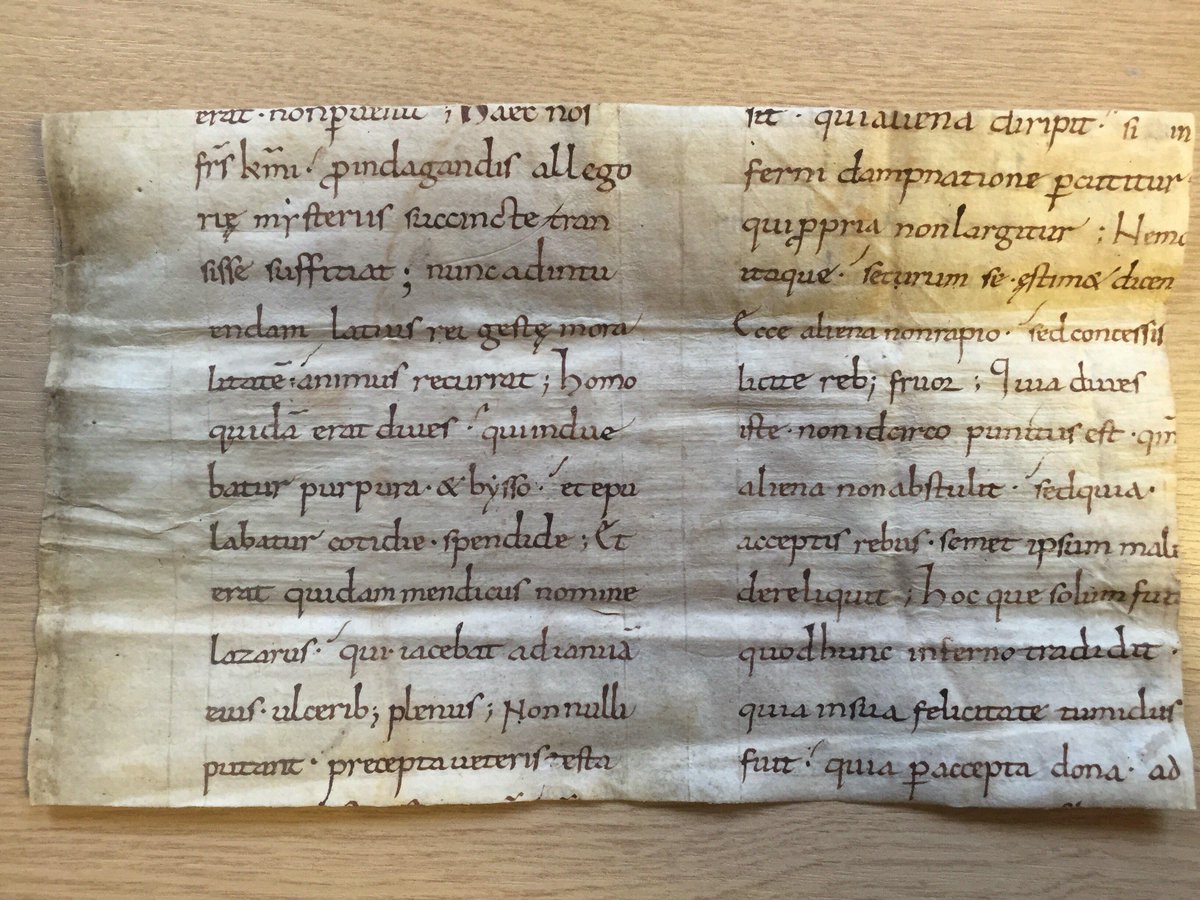 erat · nonp̄uenit ; Haec nos
frs̄ km̄i · p̄indagandis allego
rię mysteriis succincte tran
sisse suffitiat ; nunc ad intu
endam latius rei gestę mora
litatē · animus recurrat ; homo
quidā erat diues · qui indue
batur purpura · & bysso · et epu
labatur cotidie · spendide ; Et
erat quidam mendicus nomine
lazarus · qui iacebat ad ianuā
eius · ulcerib; plenus ; Non nulli
putant · precepta ueteris testa
qui aliena diripit · si in
ferni dampnatione p̄cutitur
qui p̄pria non largitur ; Nemo
itaque · securum se · ęstim& dicen
Ecce aliena non rapio · sed concessis
licite reb; fruor ; Quia diues
iste · non idcirco punitus est · qm̄
aliena non abstulit · sed quia ·
acceptis rebus · semet ipsum male
dereliquit ; hoc que solum fuit
quod hunc inferno tradidit ·
quia in sua felicitate timidus
fuit · quia p̄ accepta dona · ad